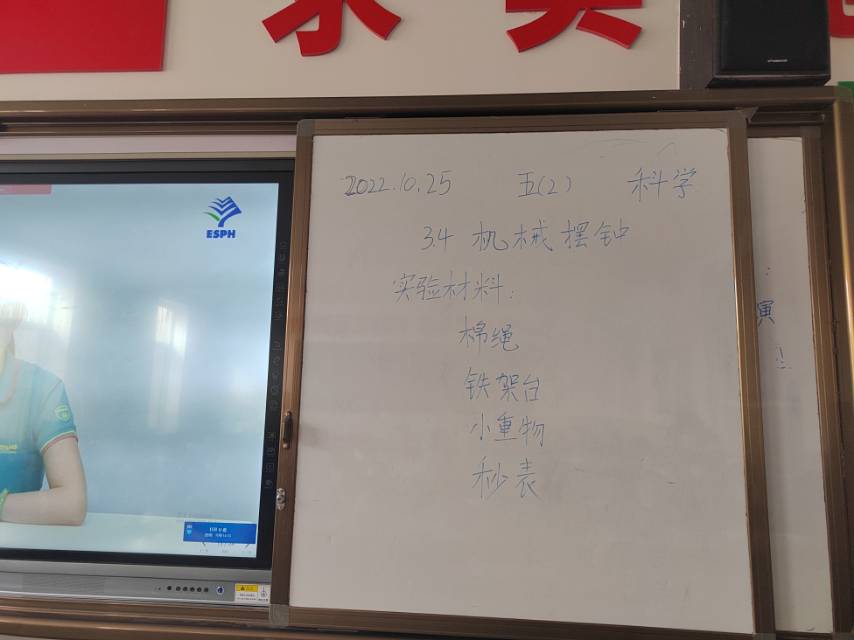 ESPH
2022.10.25 五(2) 科学
3.4 机械摆钟
实验材料:
棉绳
铁架台
小重物
秒表